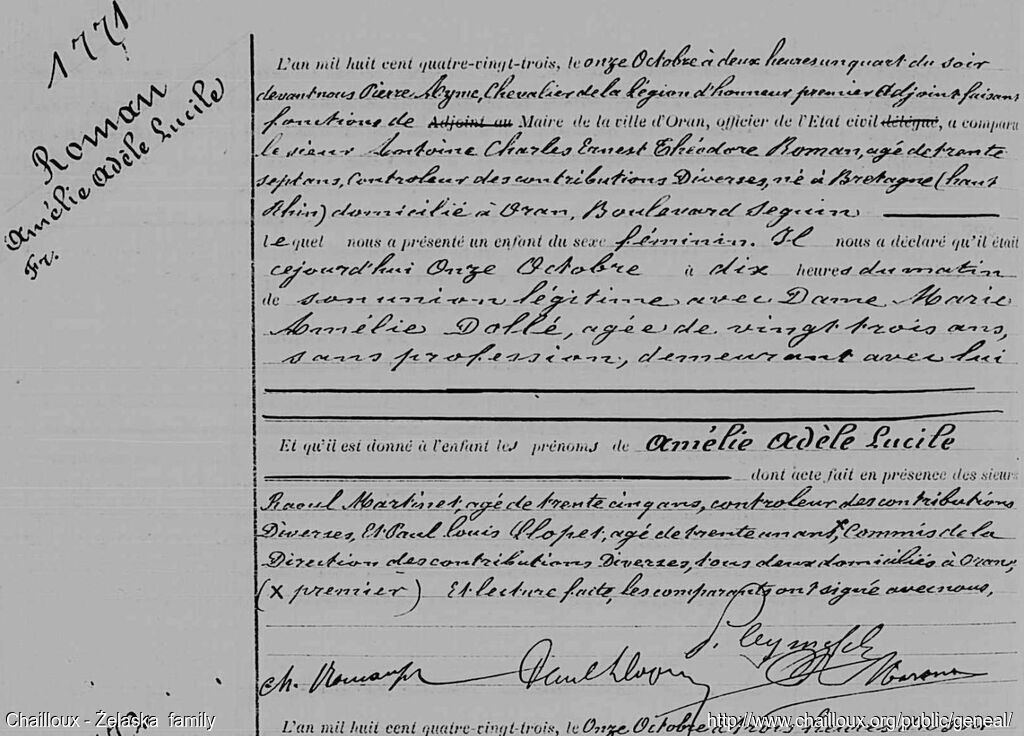 1771
Roman
Amélie Adèle Lucile
Fr.
L'an mil huit cent quatre-vingt-trois, le onze Octobre à deux heures un quart du soir
devant nous Pierre Ayme, Chevalier de la Légion d'honneur premier Adjoint faisant
fonctions de Adjoint au Maire de la ville d'Oran, officier de l'Etat civil délégué, a comparu
le sieur Antoine Charles Ernest Théodore Roman, agé de trente
sept ans, Controleur des contributions Diverses, né à Bretagne (haut
Rhin) domicilié à Oran, Boulevard Seguin
lequel nous a présenté un enfant du sexe féminin. Il nous a déclaré qu'il était
cejourd'hui Onze Octobre à dix heures du matin
de son union légitime avec Dame Marie
Amélie Dollé, agée de vingt trois ans,
sans profession, demeurant avec lui
Et qu'il est donné à l'enfant les prénoms de Amélie Adèle Lucile
dont acte fait en présence des sieurs
Raoul Martinet, agé de trente cinq ans, controleur des contributions
Diverses, Et Paul Louis Llopet, agé de trente un ans, x Commis de la
Direction des contributions Diverses, tous deux domiciliés à Oran,
(x premier) Et lecture faite, les comparants ont signé avec nous,
Ch. Roman
L'an mil huit cent quatre-vingt-trois, le Onze Octobre à trois heures
Chailloux - Żelaska family
http://www.chailloux.org/public/geneal/